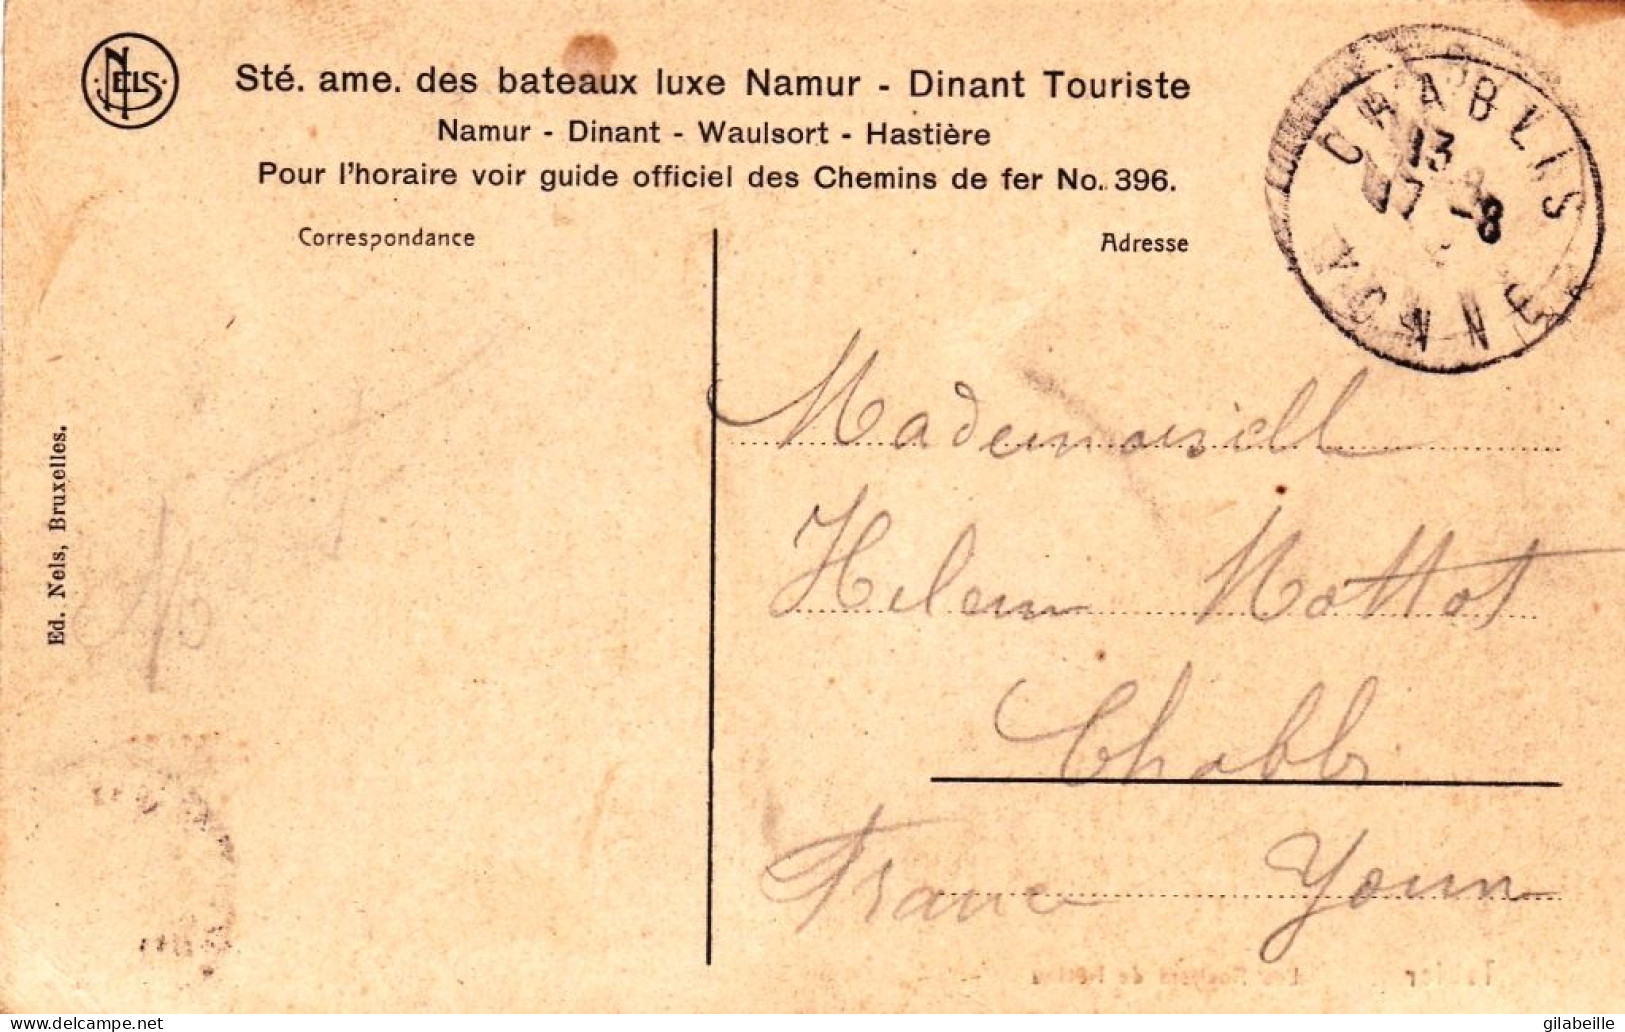 NELS
Sté. ame. des bateaux luxe Namur - Dinant Touriste
Namur - Dinant - Waulsort - Hastière
Pour l'horaire voir guide officiel des Chemins de fer No. 396.
Correspondance
Adresse
CHABLIS
13
17 -8
YONNE
Mademoisell
Helem Mottot
Chabli
France Yonn
Ed. Nels, Bruxelles.
delcampe.net
gilabeille